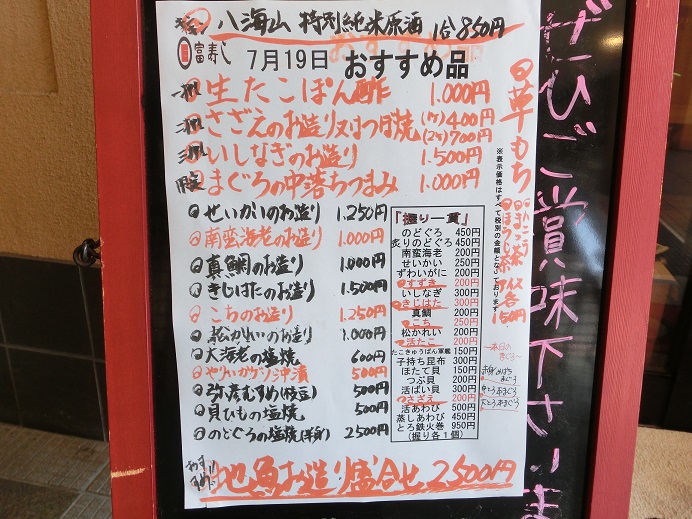 キリン 八海山 特別純米原酒 1合850円
富寿し 7月19日 おすすめ品
生たこぽん酢 1.000円
さざえのお造り又はつぼ焼 (1ケ)400円 (2ケ)700円
いしなぎのお造り 1.500円
まぐろの中落ちつまみ 1.000円
せいかいのお造り 1.250円
南蛮海老のお造り 1.000円
真鯛のお造り 1.000円
きじはたのお造り 1.500円
こちのお造り 1.250円
松かれいのお造り 1.000円
大海老の塩焼 600円
やりいかゲソ沖漬 500円
弥彦むすめ(枝豆) 500円
貝ひもの塩焼 500円
のどぐろの塩焼(半身) 2500円
地魚お造り盛合せ 2500円
『握り一貫』
のどぐろ 450円
炙りのどぐろ 450円
南蛮海老 200円
せいかい 250円
ずわいがに 200円
すずき 200円
いしなぎ 300円
きじはた 300円
真鯛 200円
こち 250円
松かれい 200円
活たこ 200円
たこきゅうぱん軍艦 150円
子持ち昆布 300円
ほたて貝 150円
つぶ貝 200円
活ばい貝 300円
さざえ 200円
活あわび 500円
蒸しあわび 450円
とろ鉄火巻 950円
(握り各1個)
草もち
ほうじ茶アイス各150円
※表示価格はすべて税別の金額となっております
~本日のまぐろ~
ぜひご賞味下さいま